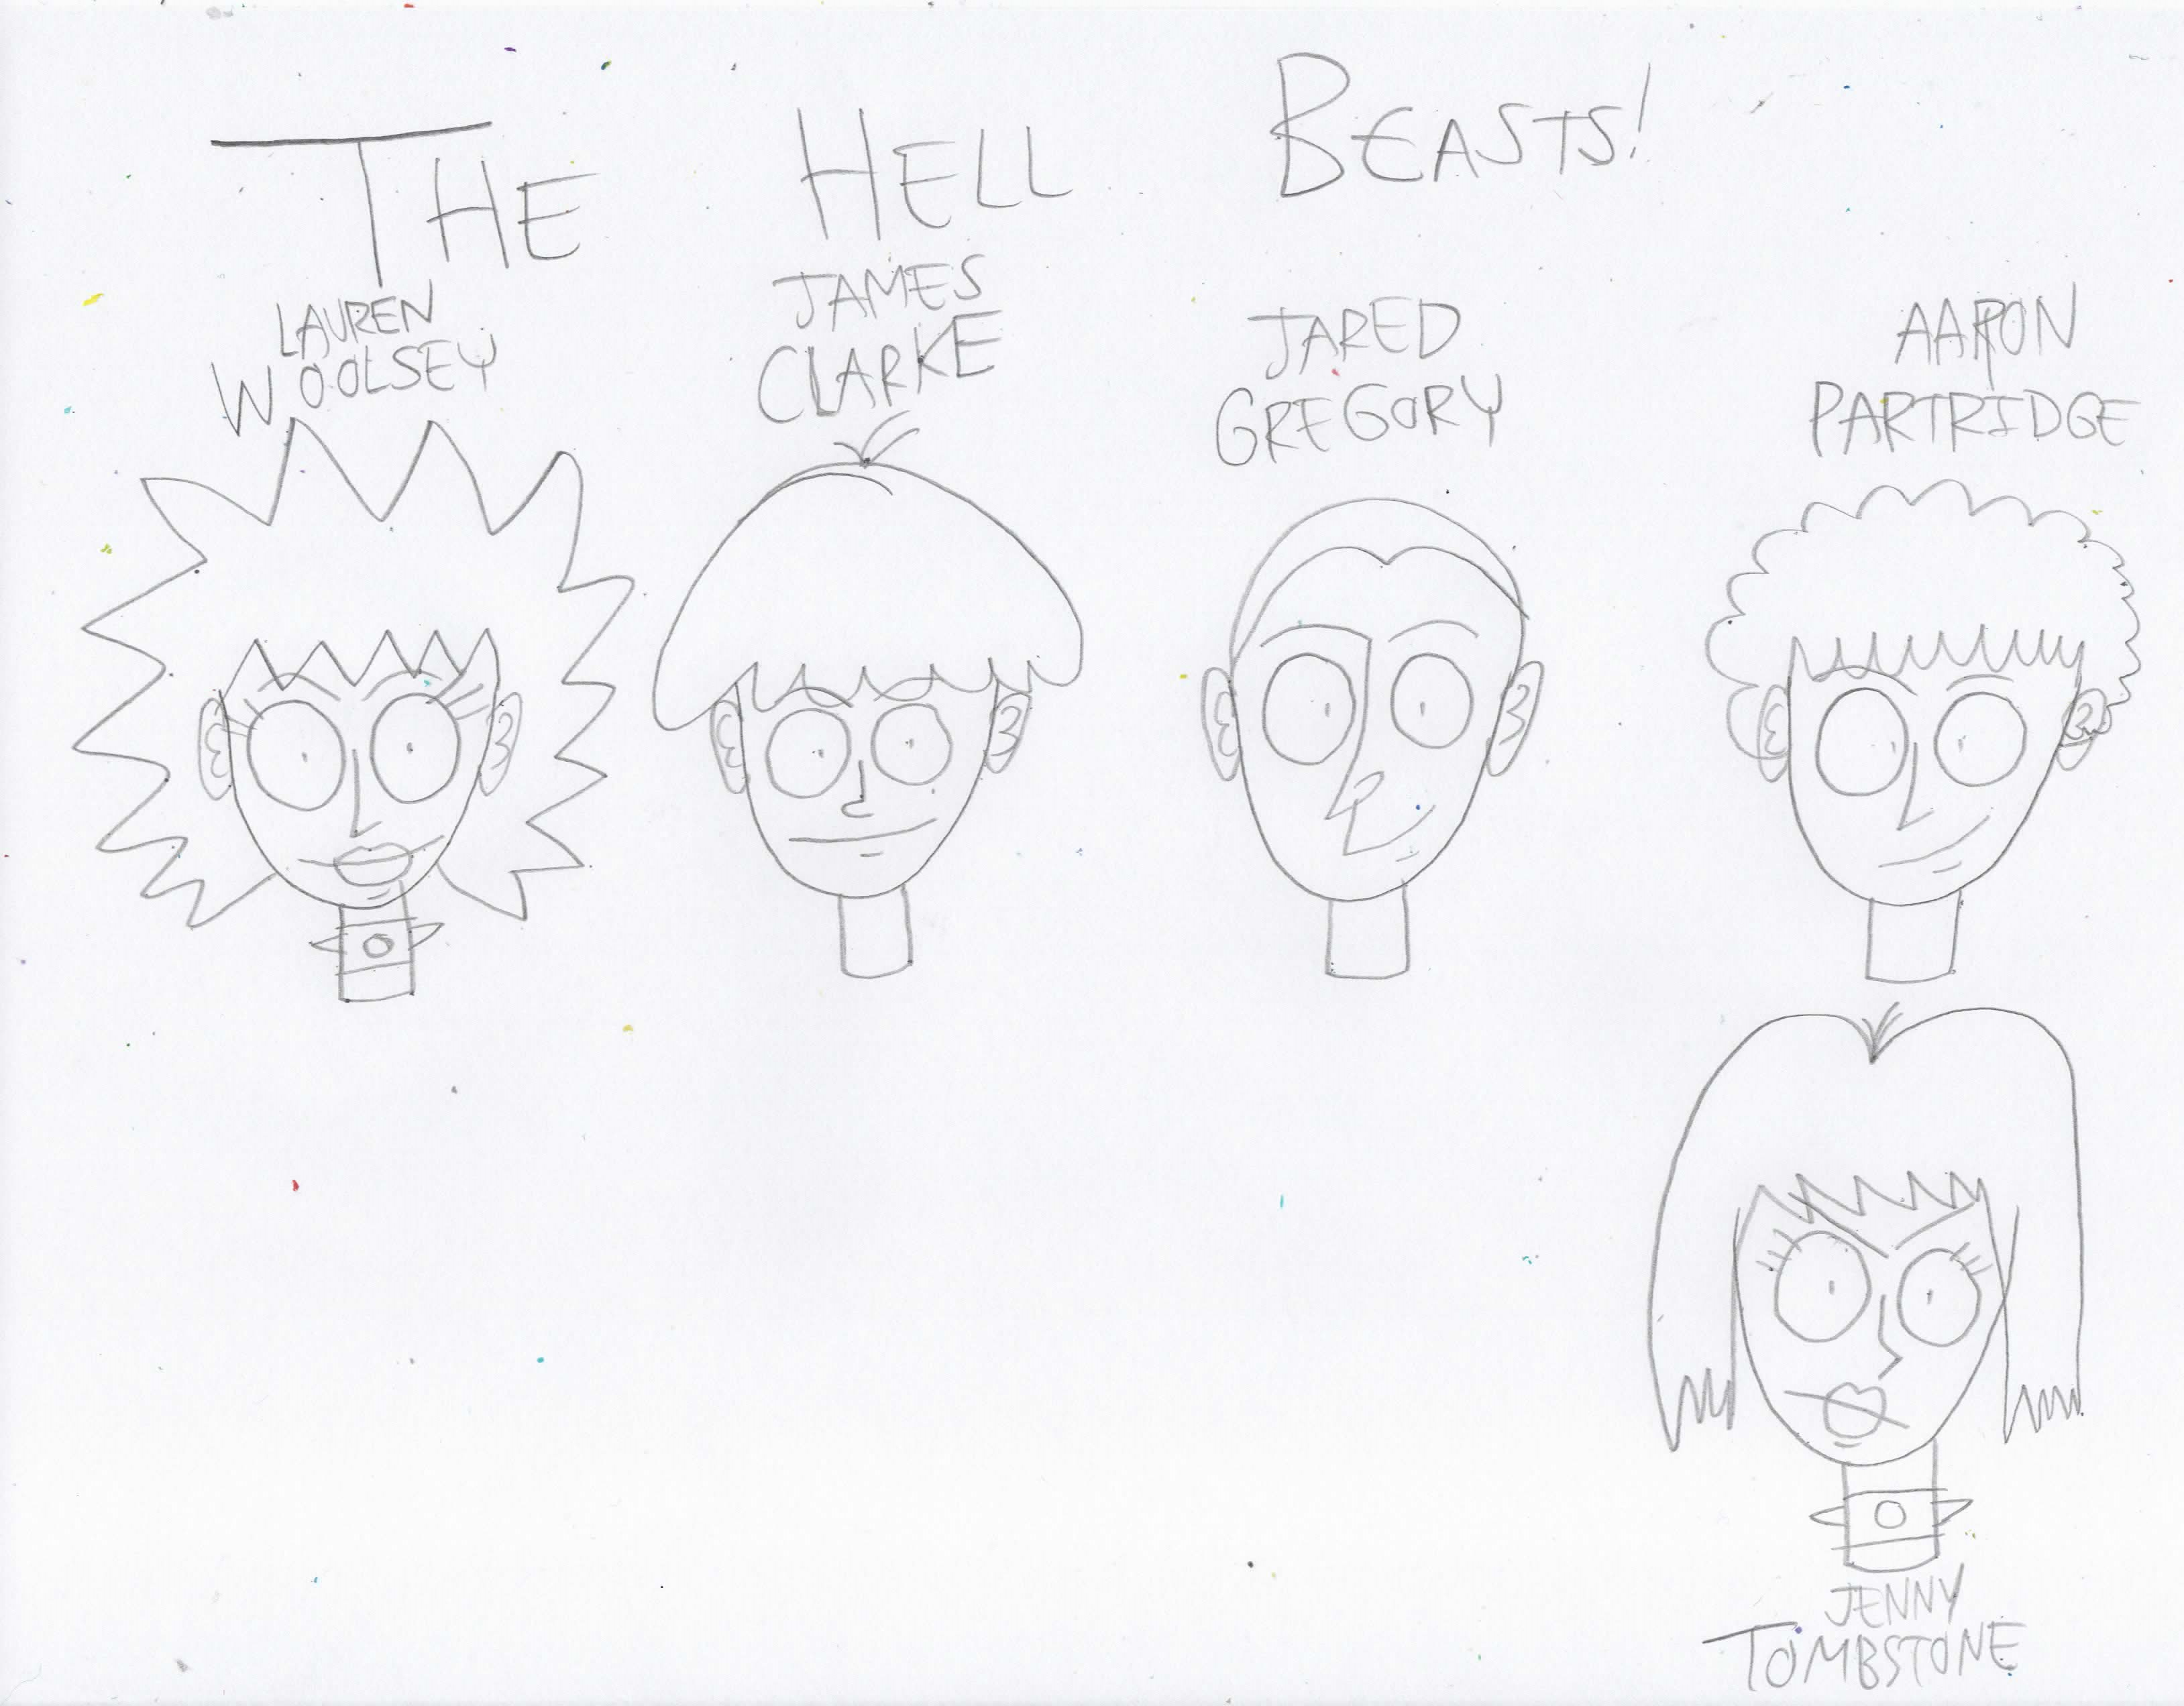 THE HELL BEASTS!
LAUREN
WOOLSEY
JAMES
CLARKE
JARED
GREGORY
AARON
PARTRIDGE
JENNY
TOMBSTONE